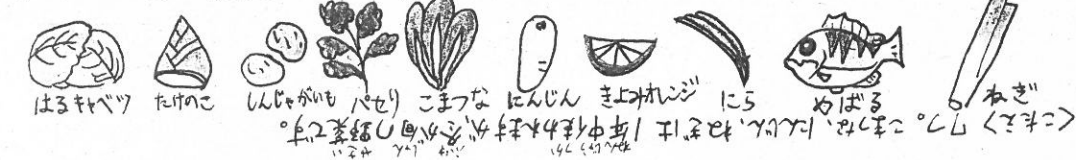 はるキャベツ たけのこ しんじゃがいも パセリ こまつな にんじん きよみオレンジ にら めばる ねぎ
<こたえ> 7つ。こまつな、にんじん、ねぎは1年中使われますが、冬が旬の野菜です。